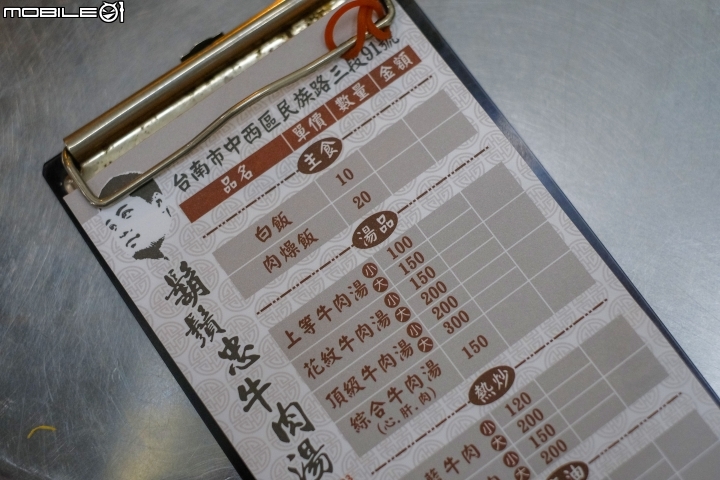 MOBILE01
台南市中西區民族路三段91號
品名 單價 數量 金額
主食
白飯 10
肉燥飯 20
湯品
上等牛肉湯 小 100
大 150
花紋牛肉湯 小 150
大 200
頂級牛肉湯 小 200
大 300
綜合牛肉湯 150
(心.肝.肉)
熱炒
牛肉 小 120
大 200
小 150
大 200
油
鬍鬚忠牛肉湯